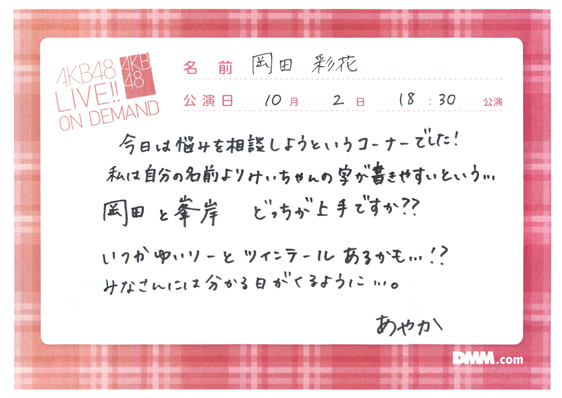 AKB48
LIVE!!
ON DEMAND
AKB
48
名前 岡田 彩花
公演日 10月 2日 18:30 公演
今日は悩みを相談しようというコーナーでした!
私は自分の名前よりみぃちゃんの字が書きやすいという…
岡田と峯岸 どっちが上手ですか??
いつかゆいりーとツインテールあるかも…!?
みなさんには分かる日がくるように…。
あやか
DMM.com